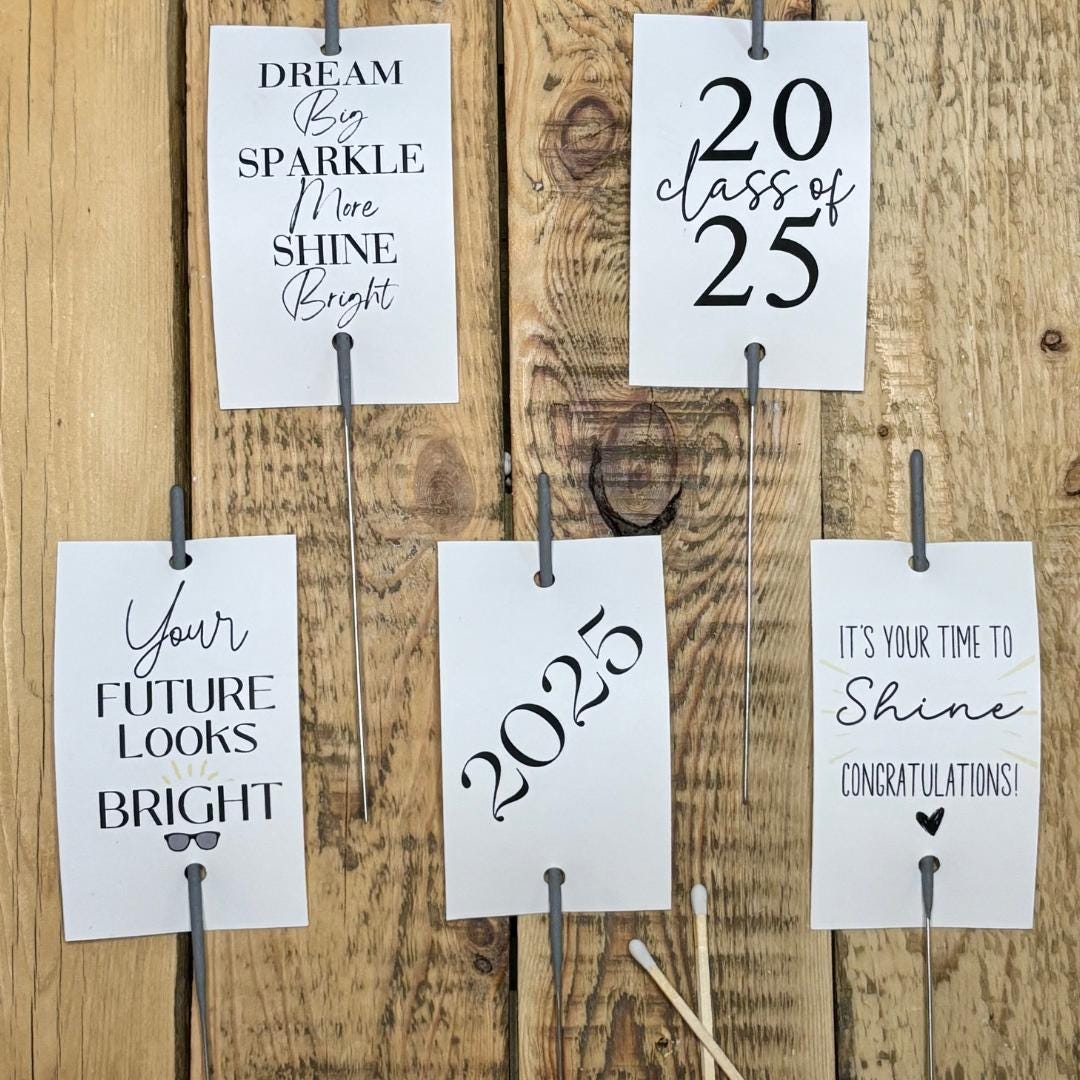 DREAM
Big
SPARKLE
More
SHINE
Bright
20
class of
25
Your
FUTURE
LOOKS
BRIGHT
2025
IT'S YOUR TIME TO
Shine
CONGRATULATIONS!